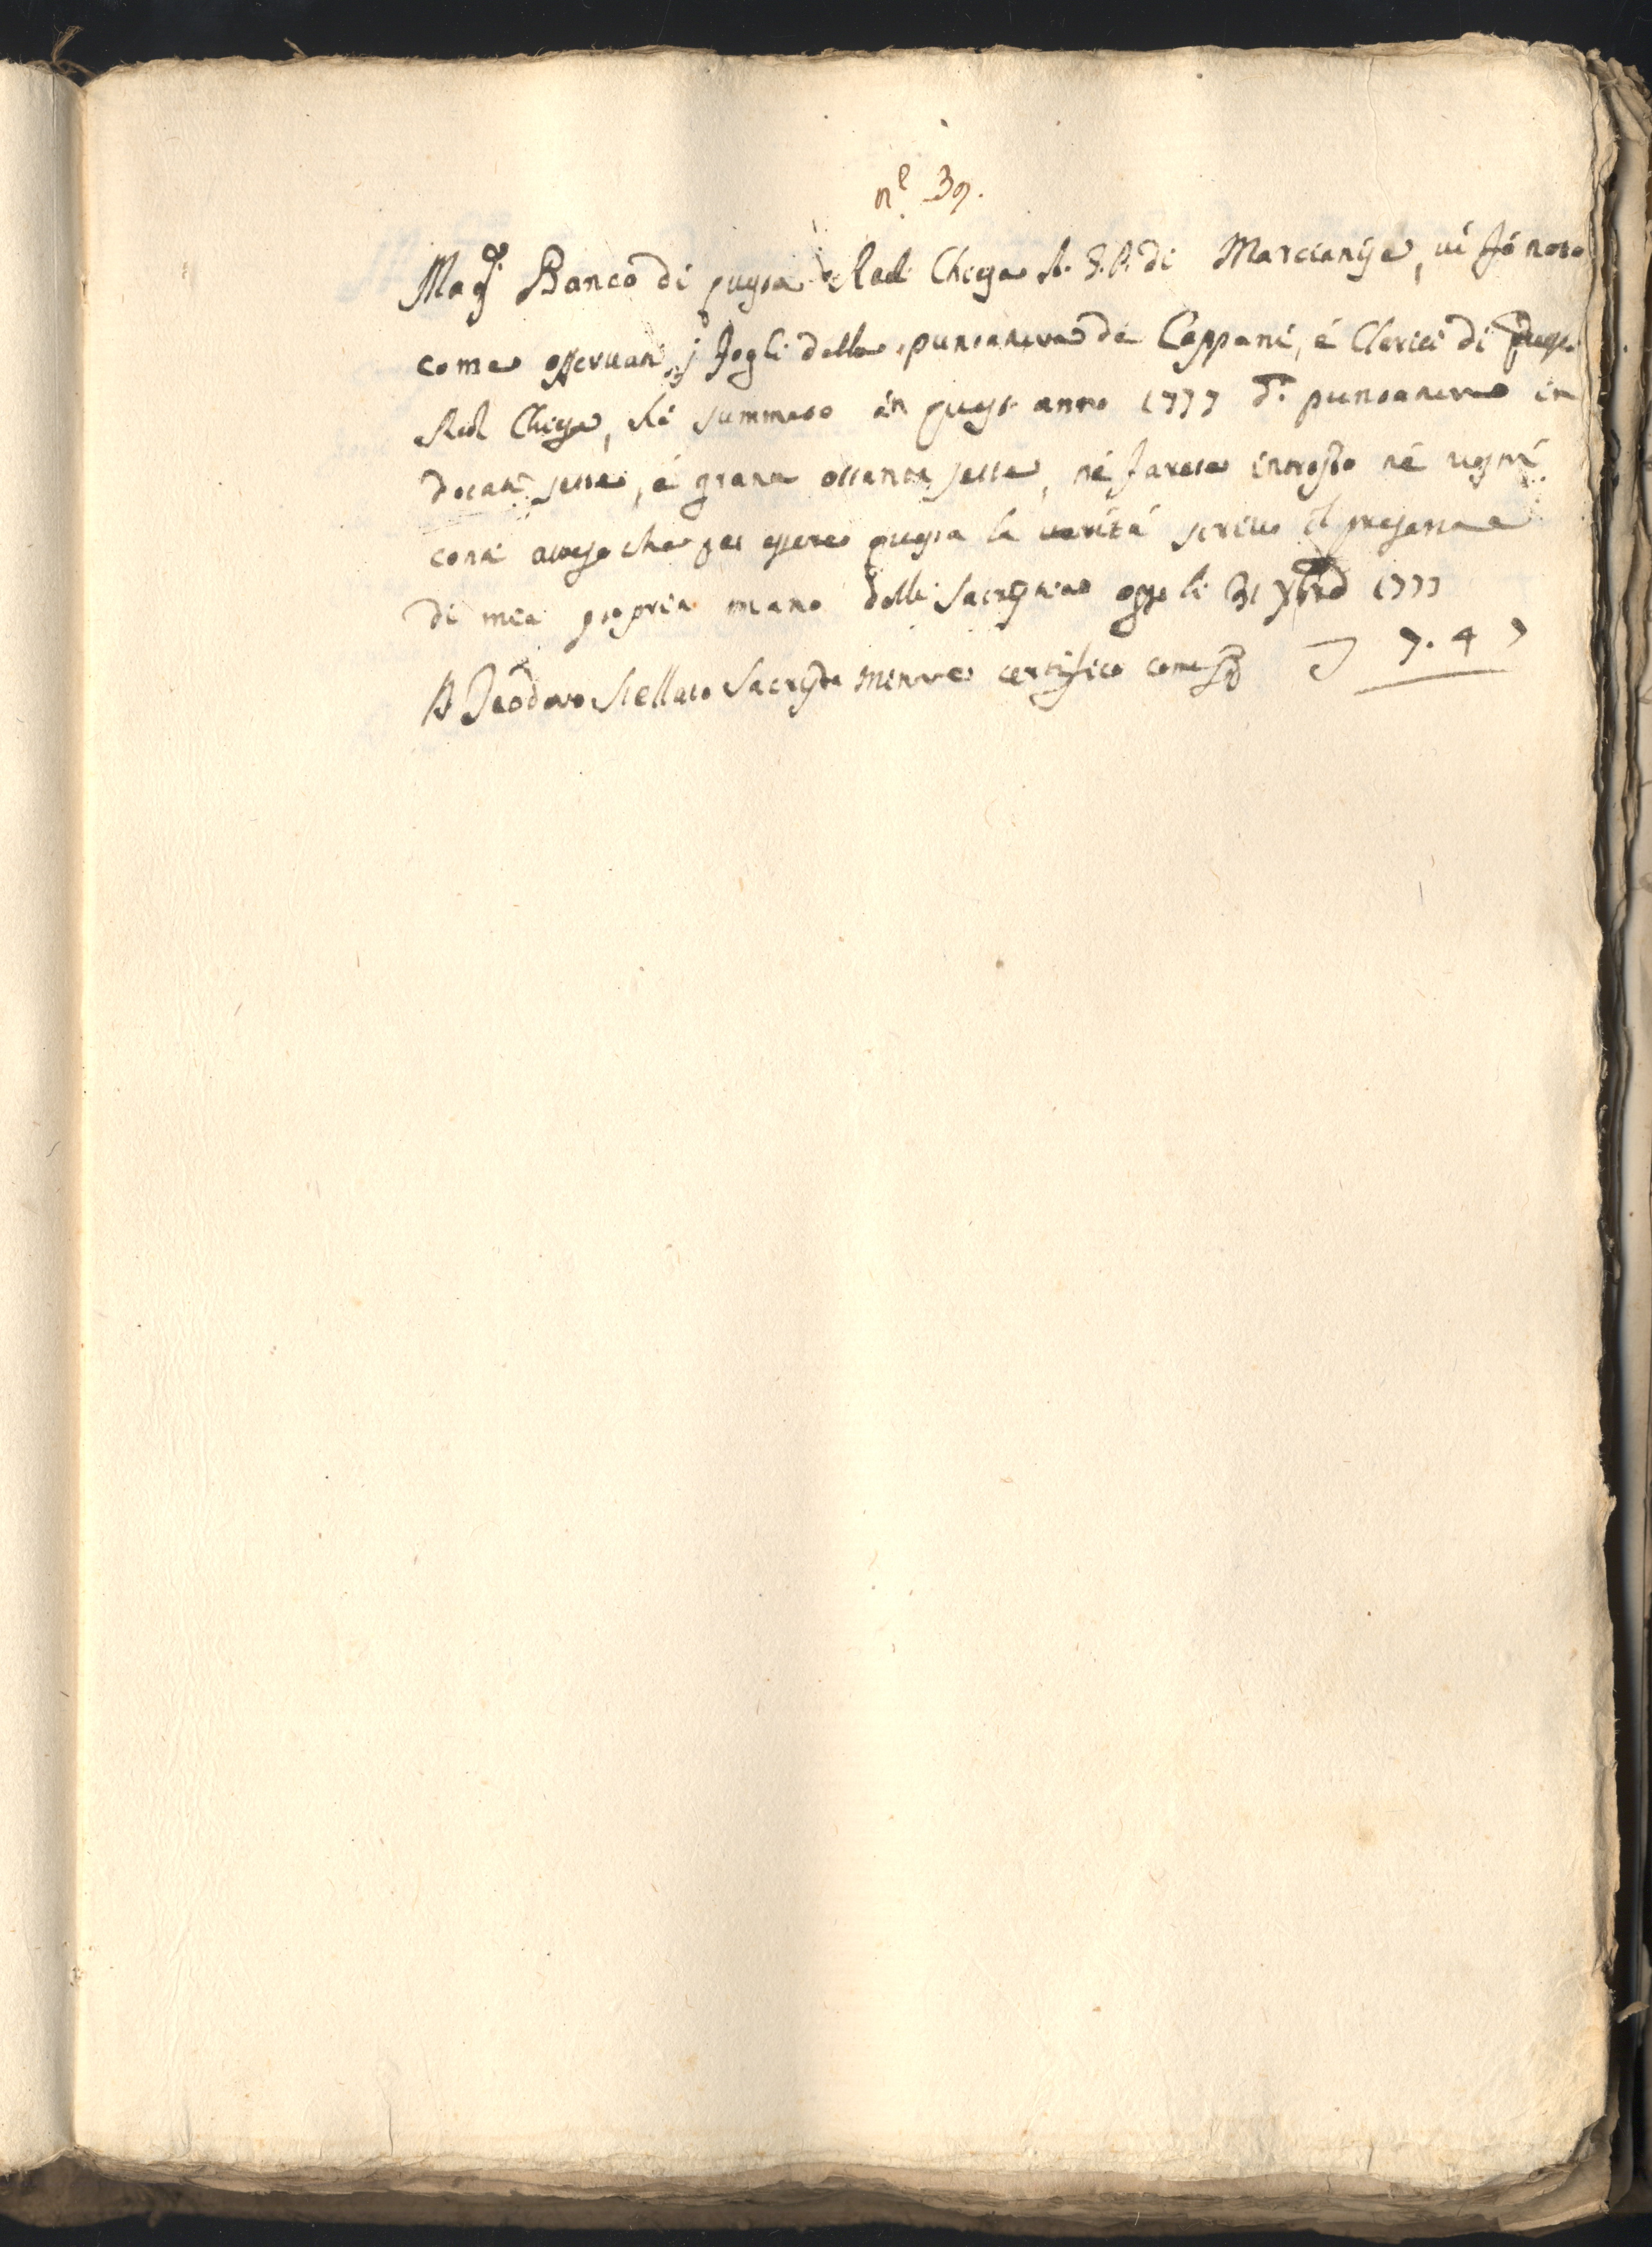 n.º 39.
Mag.co Banco di questa Real Chiesa A. G. P. di Marcianise, vi fò noto
come osservati i fogli della puntatura de Cappani, é Clerici di questa
Real Chiesa, hà summato in quest' anno 1777 d.a puntatura in
docati sette, é grana ottanta sette, né farete introito né vostri
conti atteso che per essere questa la verità scrivo il presente
di mia propria mano dalla Sacristia oggi li 31 Xbre 1777
D. Teodoro Stellato Sacrista Minore certifico come sopra 7. 4 7